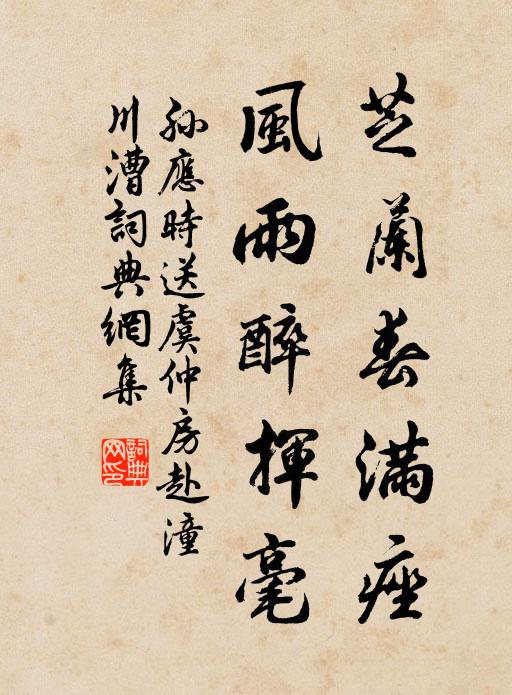 芝蘭春滿座
風雨醉揮毫
孫應時送虞仲房赴潼
川漕詞典網集
詞典
网印